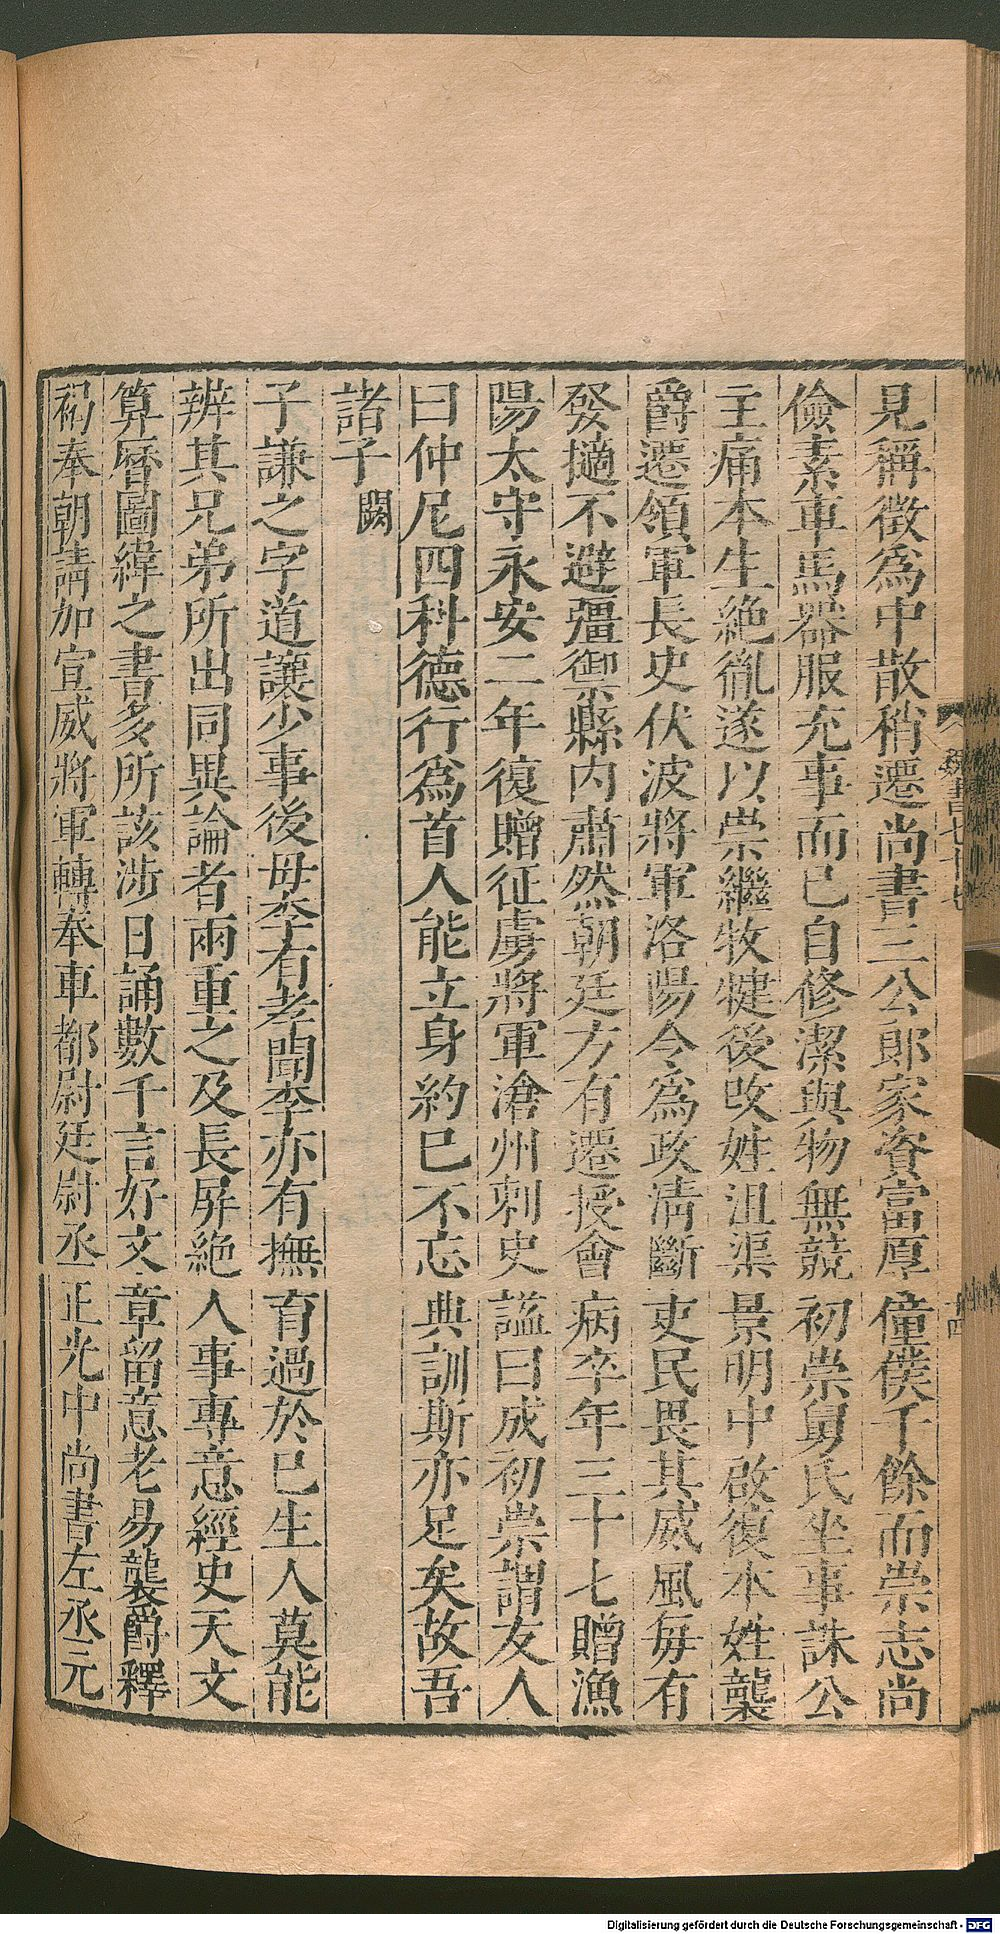 見稱徵爲中散稍遷尚書三公郎家資富厚僮僕千餘而崇志尚
儉素車馬器服充事而已自修潔與物無競初崇舅氏坐事誅公
主痛本生絕胤遂以崇繼牧犍後改姓沮渠景明中啟復本姓襲
爵遷領軍長史伏波將軍洛陽令爲政清斷吏民畏其威風每有
發擿不避彊禦縣內肅然朝廷方有遷授會病卒年三十七贈漁
陽太守永安二年復贈征虜將軍滄州刺史諡曰成初崇謂友人
曰仲尼四科德行爲首人能立身約已不忘典訓斯亦足矣故吾
諸子闕
子謙之字道讓少事後母李有孝聞李亦有撫育過於已生人莫能
辨其兄弟所出同異論者兩重之及長屏絕人事專意經史天文
算曆圖緯之書多所該涉日誦數千言好文章留意老易襲爵釋
褐奉朝請加宣威將軍轉奉車都尉廷尉丞正光中尚書左丞元
魏書七十七
十四
Digitalisierung gefördert durch die Deutsche Forschungsgemeinschaft - DFG